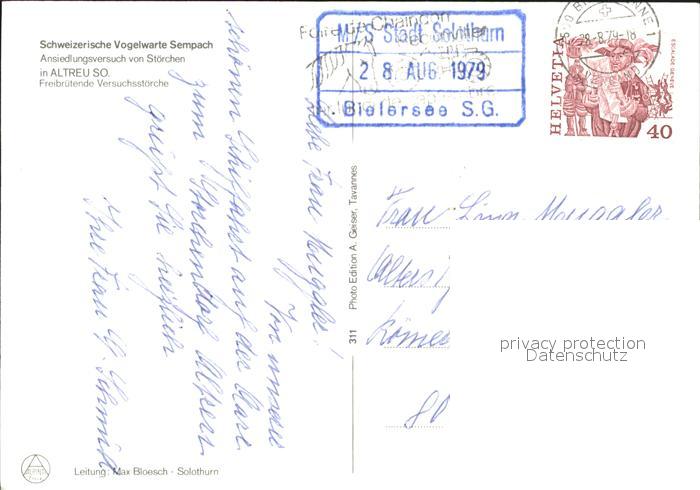 Schweizerische Vogelwarte Sempach
Ansiedlungsversuch von Störchen
in ALTREU SO.
Freibrütende Versuchsstörche
M/S Stadt Solothurn
2 8. AUG. 1979
Bielersee S.G.
Foire de Chaindon
28-8.79-18
HELVETIA
ESCALADE GENEVE
40
Liebe Frau
Von unserer
schönen Schiffahrt auf der Aare
zum Storchendorf Altreu
grüsst Sie herzlich
Ihre Frau G. Schmid
Photo Edition A. Geiser, Tavannes
311
Frau
privacy protection
Datenschutz
80
Leitung: Max Bloesch - Solothurn